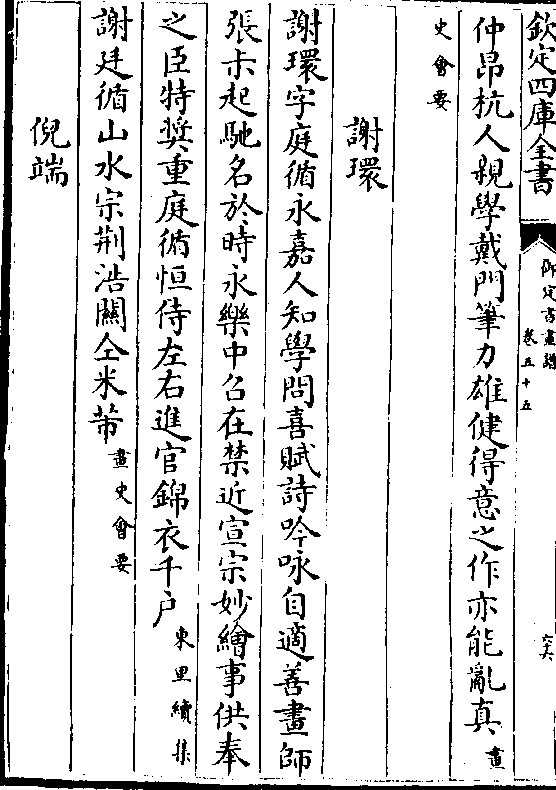 欽定四庫全書
御定書畫譜
卷五十五
六六
仲昂杭人親學戴門筆力雄健得意之作亦能亂真畫
史會要
謝環
謝環字庭循永嘉人知學問喜賦詩吟咏自適善畫師
張未起馳名於時永樂中召在禁近宣宗妙繪事供奉
之臣特奬重庭循恒侍左右進官錦衣千户東里續集
謝廷循山水宗荆浩關仝米芾畫史會要
倪端